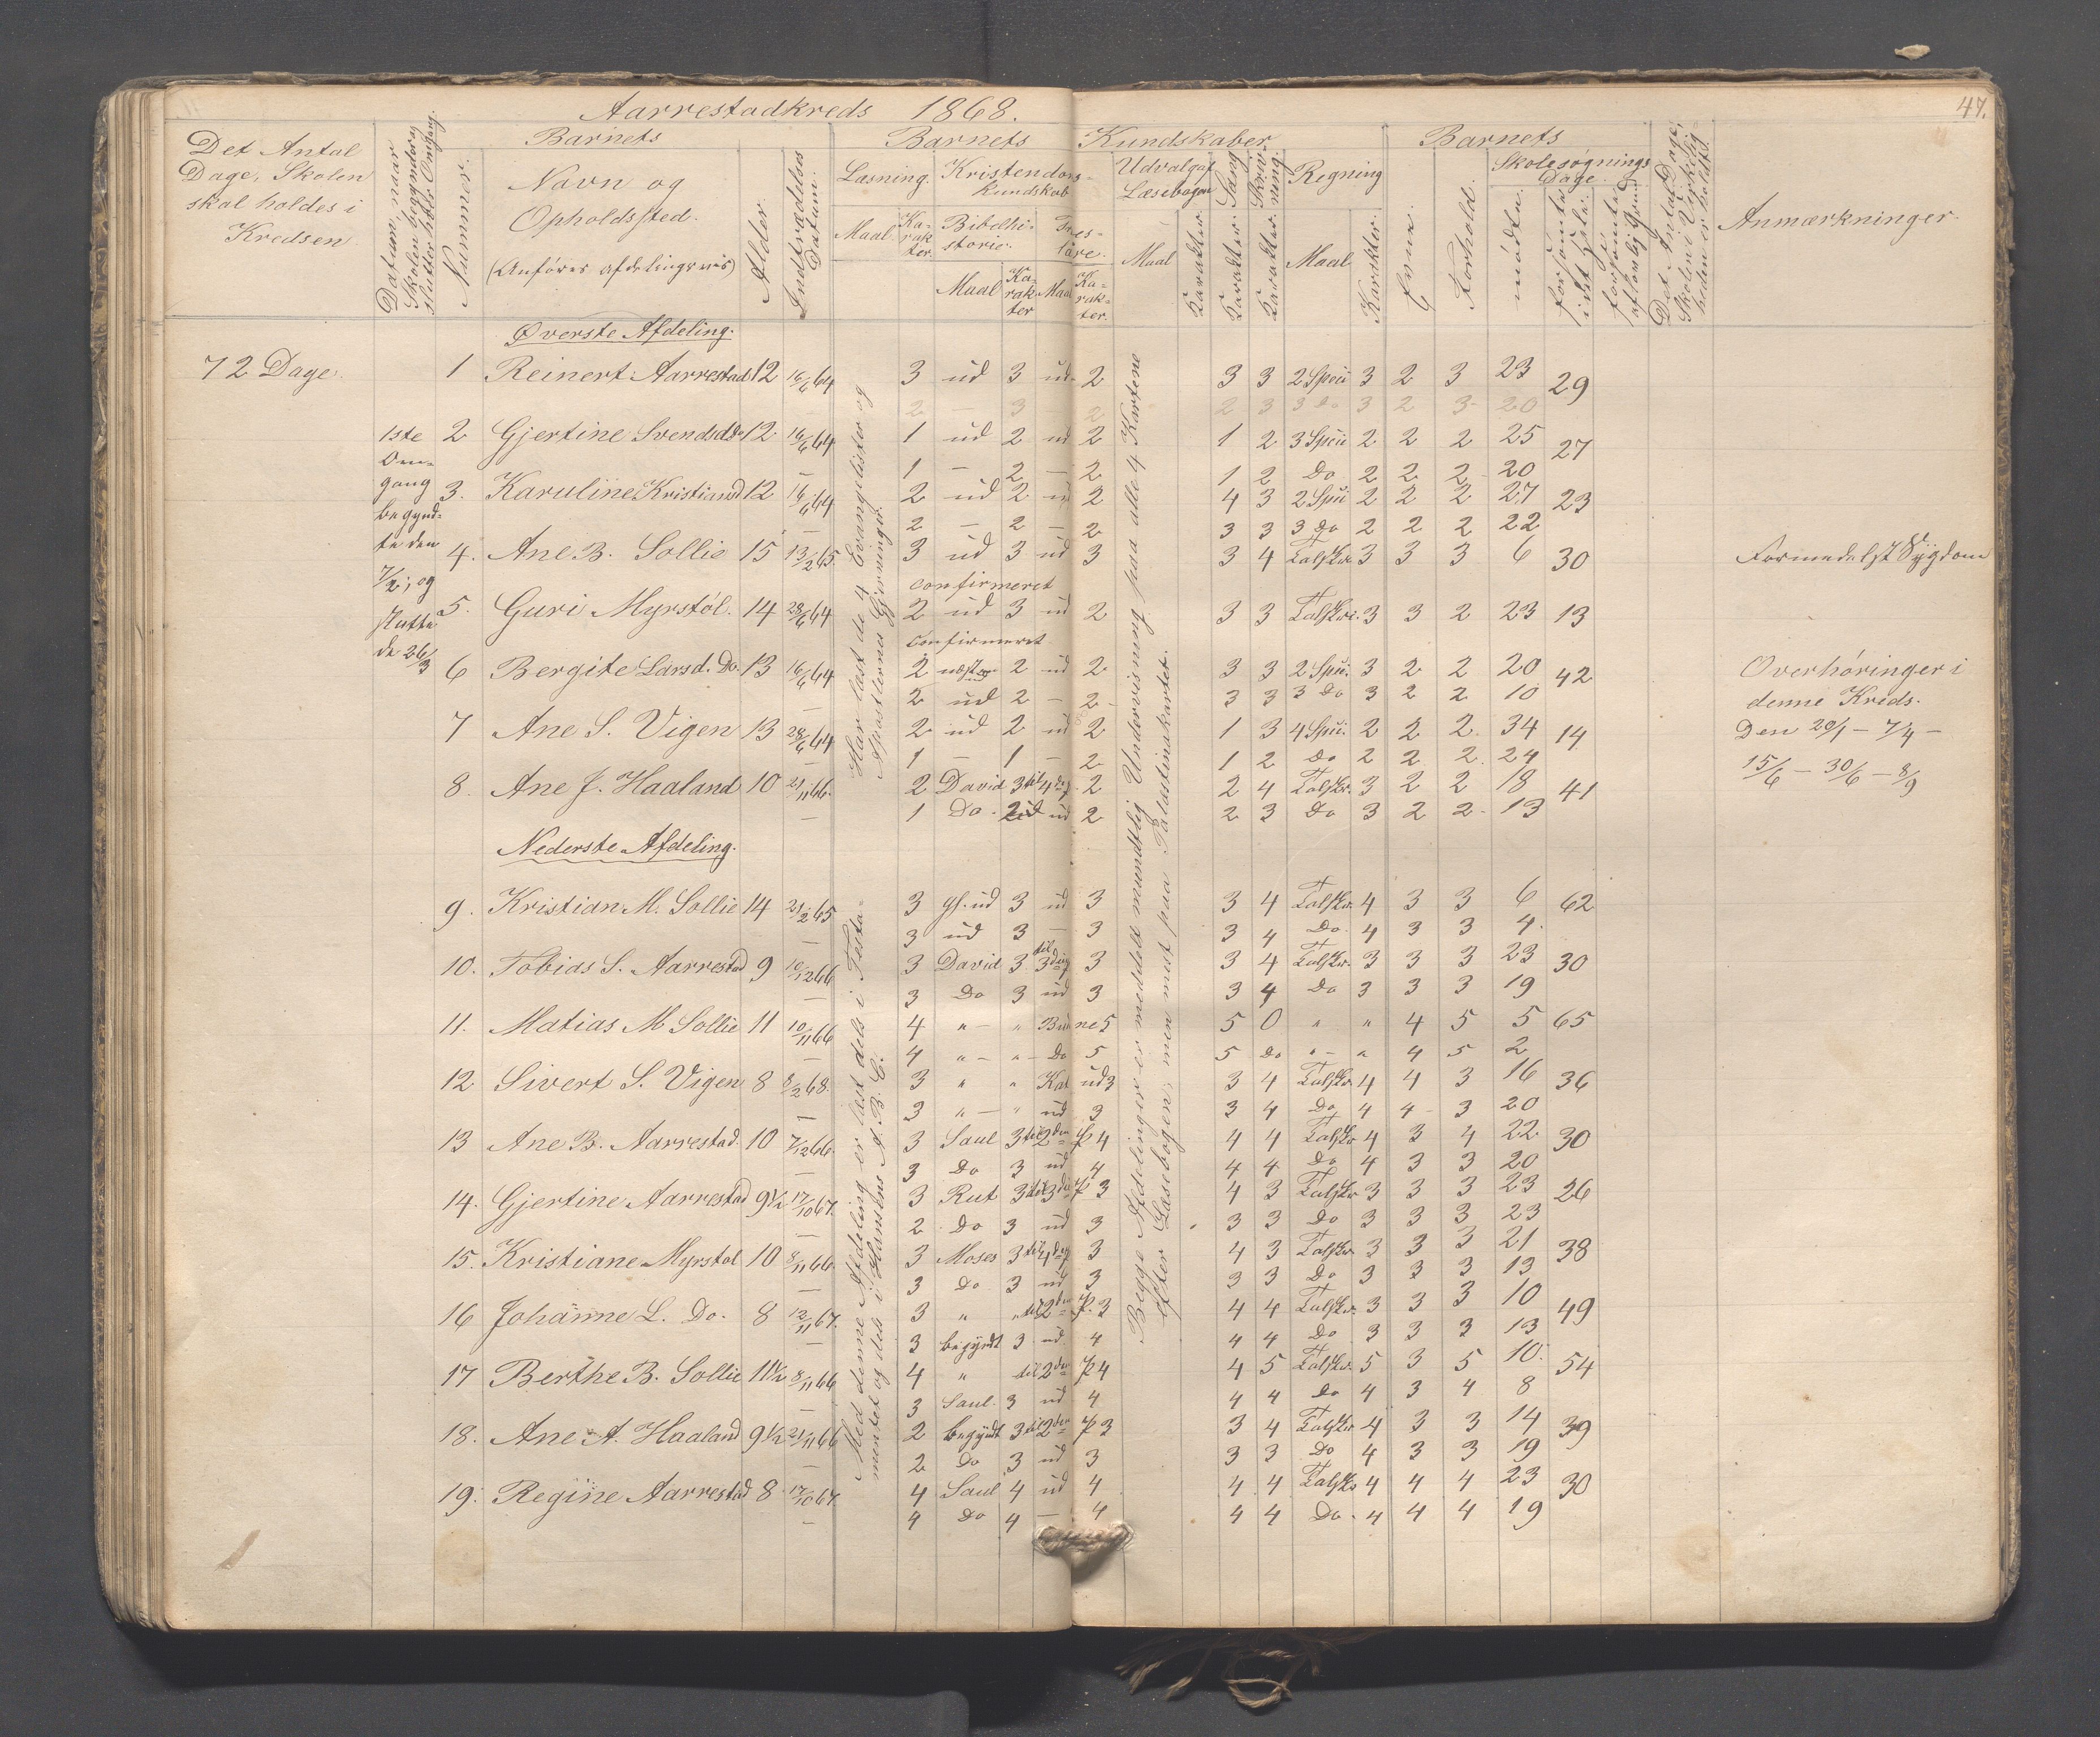 Aarrestadkreds 1868.
47.
Det Antal Dage, Skolen skal holdes i Kredsen
Datum, naar Skolen begynder og slutter hver Omgang.
Nummer.
Barnets
Navn og Opholdssted.
(Anføres afdelingsvis)
Alder.
Indtrædelses Datum.
Barnets Kundskaber
Læsning.
Maal
Ka-rak-ter.
Kristendoms-kundskab
Bibelhi-storie.
Maal
Ka-rak-ter
Troes-lære.
Maal
Ka-rak-ter.
Udvalg af Læsebogen
Maal
Karakter.
Sang
Karakter.
Skriv-ning.
Karakter
Regning
Maal
Karakter.
Barnets
Evne.
Forhold.
Skolesøgnings Dage.
mødte.
forsømte i det Hele.
forsømte af lovlig Grund
Det Antal Dage, Skolen i Virkelig-heden er holdt.
Anmærkninger
Øverste Afdeling.
72 Dage.
1 Reinert Aarrestad 12 16/6 64 3 ud 3 ud 2 3 3 2 Speci 3 2 3 23 29
2 — 3 2 2 3 3 Do 3 2 3 20
1ste Om-gang begynd-te den 7/2, og slutte-de 26/3
2 Gjertine Svendsd. Do 12 16/6 64 1 ud 2 ud 2 1 2 3 Speci 2 2 2 25 27
1 — 2 — 2 1 2 Do 2 2 2 20
3. Karuline Kristiand 12 16/6 64 2 ud 2 ud 2 4 3 2 Speci 2 2 2 27 23
2 — 2 — 2 3 3 3 Do 2 2 2 22
4. Ane B. Sollie 15 13/2 65. 3 ud 3 ud 3 3 4 Talskr. 3 3 3 6 30 Formedelst Sygdom
confirmeret
5. Guri Myrstøl. 14 28/6 64 2 ud 3 ud 2 3 3 Talskr. 3 3 2 23 13
Confirmeret
6 Bergite Larsd. Do. 13 16/6 64 2 næst 2 ud 2 3 3 2 Speci. 3 2 2 20 42
2 ud 2 — 2 3 3 3 Do 3 2 2 10
7 Ane S. Vigen 13 28/6 64 2 ud 2 ud 2 1 3 4 Speci. 2 2 2. 34 14
1 — 1 — 2 1 2 Do 2 2 2. 24
8. Ane J. Haaland 10 21/11 66. 2 David 3 til 4de p. 2 2 4 Talskr. 3 2 2 18 41
1 Do. 2 ud ud 2 2 3 Do 3 2 2 13
Overhøringer i
denne Kreds.
Den 20/1 — 7/4 —
15/6 — 30/6 — 8/9
Nederste Afdeling.
9. Kristian M. Sollie 14 21/2 65 3 ud 3 ud 3 3 4 Talskr. 4 3 3 6 62
3 ud 3 — 3 3 4 Do 4 3 3 4.
10. Tobias S. Aarrestad 9 10/12 66 3 David 3 til 3die p 3 3 4 Talskr. 3 3 3 23 30
3 Do 3 ud 3 3 4 Do 3 3 3 19
11. Matias M Sollie 11 10/11 66 4 " — " 5 5 0 " " 4 5 5 65
4 " — " — Do 5 5 Do " — " 4 5 2
12 Sivert S. Vigen 8 8/2 68. 3 " " Kat ud 3 3 4 Talskr. 4 4 3 16 36
3 " — " ud 3 3 4 Do 4 4 3 20
13 Ane B. Aarrestad. 10 7/12 66. 3 Saul 3 til 2den P 4 4 4 Talskr 4 3 4 22 30
3 Do 3 ud 4 4 4 Do 4 3 3 20
14. Gjertine Aarrestad 9½ 17/10 67. 3 Rut 3 til 3die P 3 4 3 Talskr 3 3 3 23 26
2 Do 3 ud 3 3 3 Do 3 3 3 23
15. Kristiane Myrstøl 10 8/11 66. 3 Moses 3 til 4de p 3 4 3 Talskr. 3 3 3 21 38
3 Do 3 ud 3 3 3 Do 3 3 3 13
16 Johanne L. Do. 8 12/11 67. 3 " " til 2den P. 3 4 4 Talskr. 3 3 3 10 49
3 begyndt 3 ud. 4 4 4 Do 3 3 3 13
17 Berthe B. Sollie 11½ 8/11 66 4 " til 2den P 4 4 5 Talskr. 5 3 5 10. 54
3 Saul. 3 ud 4 4 4 Do 4 3 4 8
18. Ane A. Haaland 9½ 21/11 66 2 begyndt 3 til 2den P 3 3 4 Talskr 4 3 3 14 39
2 Do 3 ud 3 3 3 Do 4 3 3 19
19. Regine Aarrestad 8 17/10 67. 4 Saul 4 ud 4 4 4 Talskr 4 4 4 23 30
4 Do 4 — 4 4 4 Do. 4 4 4 19
Har læst de 4 Evangelister og
Apostlernes Gjerninger.
Med denne Afdeling er læst dels i Testa-
mentet og dels i Hansens A. B. C.
Begge Afdelinger er meddelt mundtlig Undervisning paa alle 4 Kartene
efter Læsebogen, men mest paa Palæstinakartet.